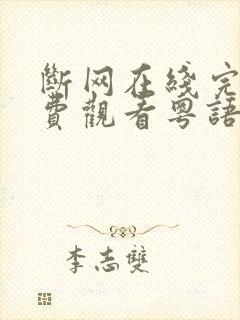 斷网在綫完
費觀看粵語
李志雙